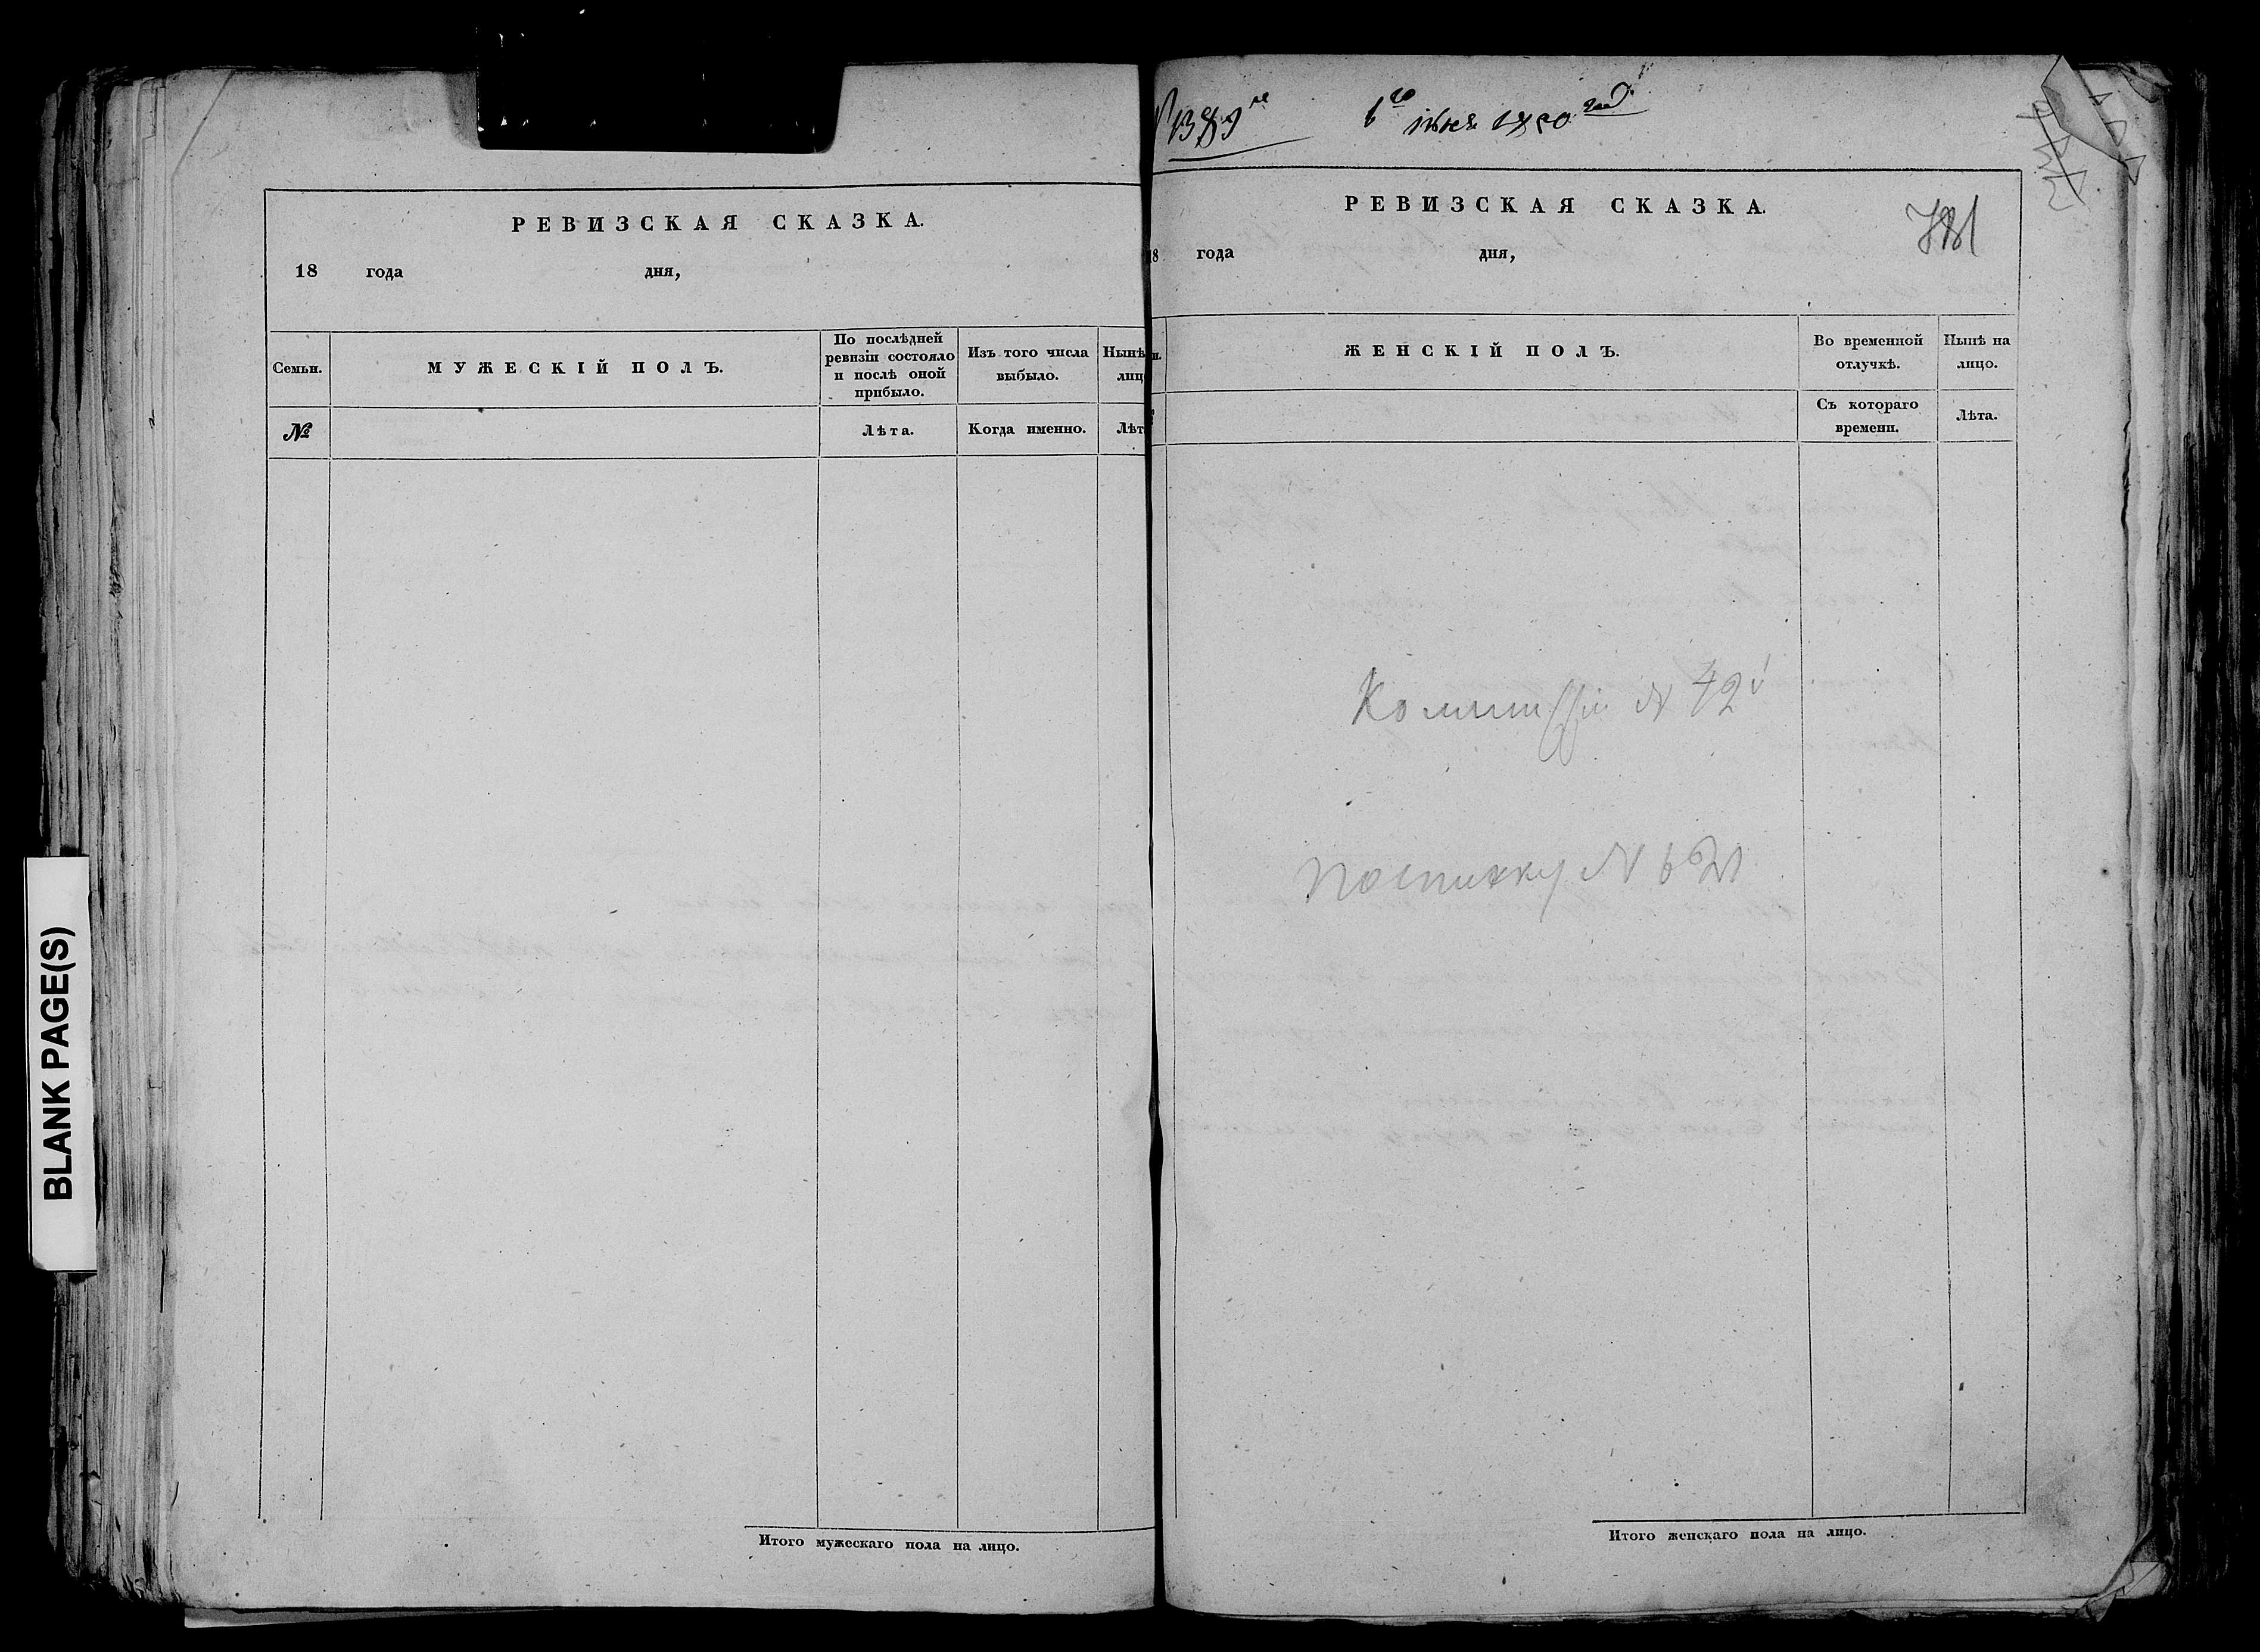 РЕВИЗСКАЯ СКАЗКА.
18 года дня,
Семьи.
МУЖЕСКІЙ ПОЛЪ.
По послѣдней
ревизіи состояло
и послѣ оной
прибыло.
Изъ того числа
выбыло.
Нынѣ
лиц
№
Лѣта.
Когда именно.
Лѣт
Итого мужескаго пола на лицо.
1389
1850
РЕВИЗСКАЯ СКАЗКА.
18 года дня,
ЖЕНСКІЙ ПОЛЪ.
Во временной
отлучкѣ.
Нынѣ на
лицо.
Съ котораго
времени.
Лѣта.
№ 42
по списку № 621
Итого женскаго пола на лицо.
BLANK PAGE(S)